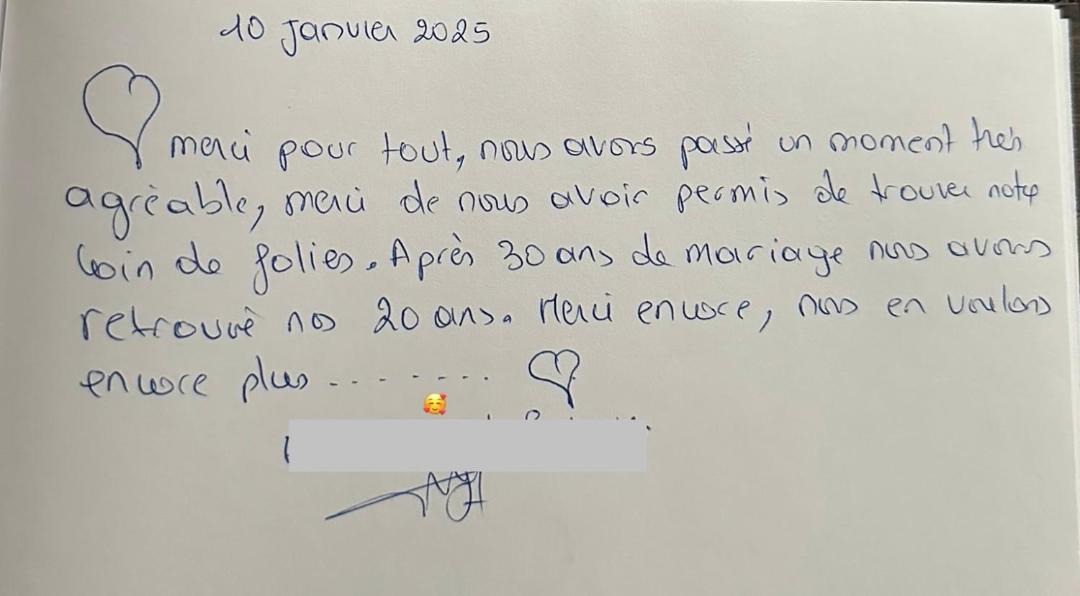 10 Janvier 2025
merci pour tout, nous avons passé un moment très
agréable, merci de nous avoir permis de trouver notre
coin de folies. Après 30 ans de mariage nous avons
retrouvé nos 20 ans. Merci encore, nous en voulons
encore plus ........